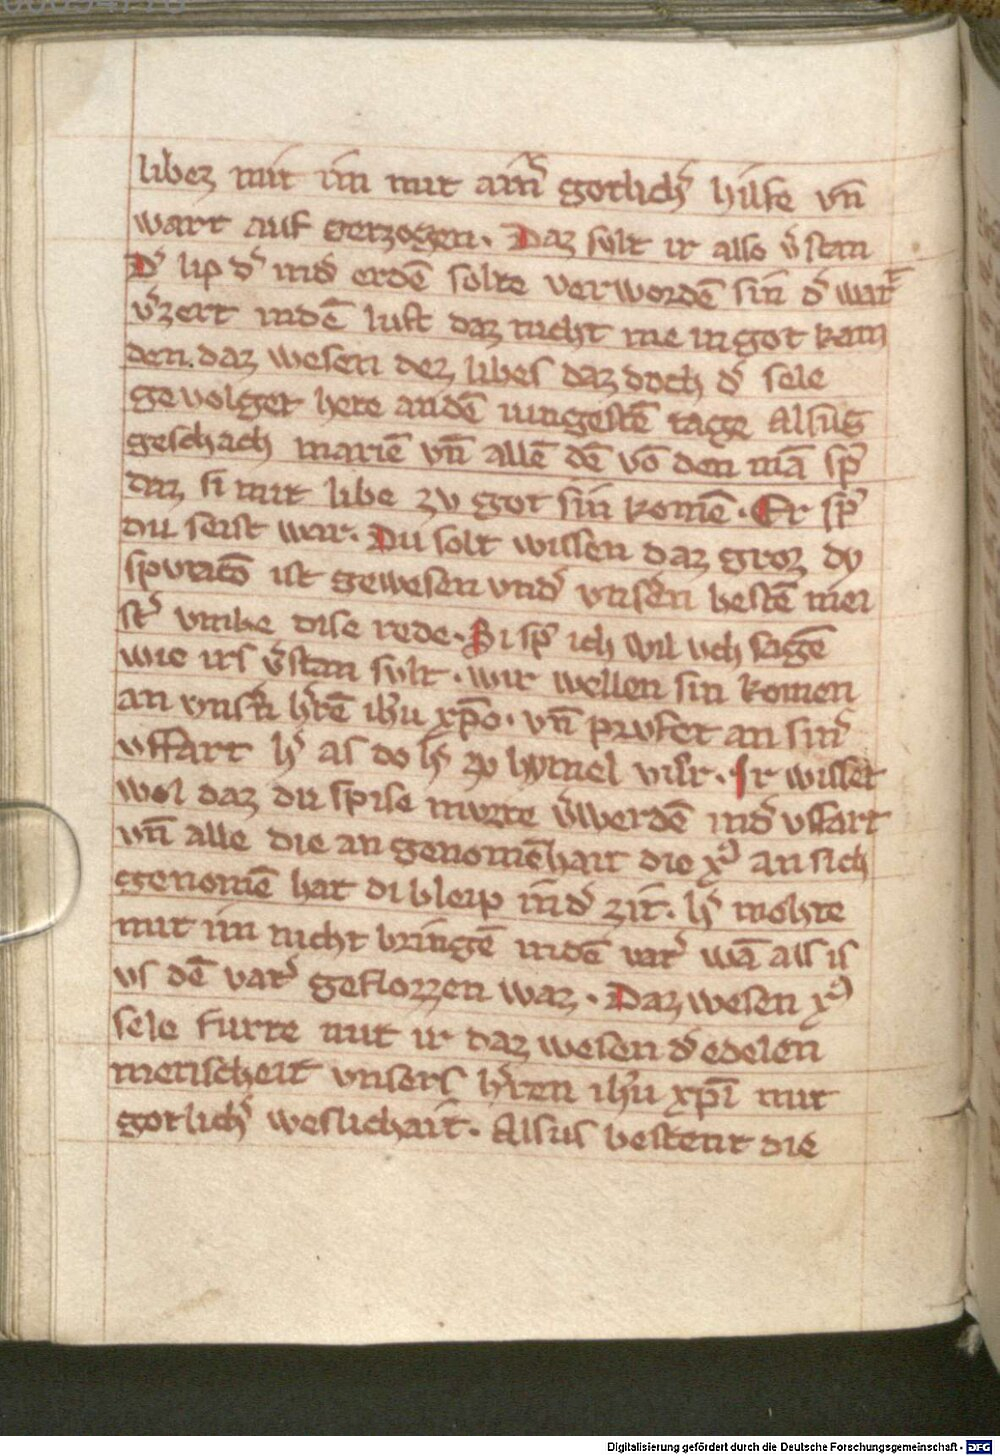 libez mit im mit ainr̄ gotlichʾ hilfe vn̄
wart auf gerzogen. Daz sv̊lt ir also v̾stan
Dʾ lip dʾ indʾ erdē solte verwordē sin dʾ wart
v̾zert indē luft daz nicht me in got kam
den. daz wesen dez libes daz doch dʾ sele
gevolget hete andē iungestē tage Alsus
geschach mariē vn̄ allē dē vō den mā spʾ
daz si mit libe zv got sin komē. Er spʾ
du seist war. Du solt wissen daz groz dy
spvtatō ist gewesen vndʾ vnsʾn bestē mei
stʾ vmbe dise rede. Si spʾ ich wil vch sagē
wie irs v̾stan sv̊lt. wir wellen sin komen
an vnsʾn hʾrē ih̄u xp̄o. vn̄ prvfet an sinʾ
vffart hʾ as do hʾ zv hymel vůr. Ir wisset
wol daz du spise mvzte v̾werdē indʾ vffart
vn̄ alle die an genomēhait die xʾ an sich
genomē hat di bleip indʾ zit. hʾ mohte
mit im nicht bringē indē vatʾ wā alls is
vs dē vatʾ geflozzen waz. Daz wesen xʾ
sele furte mit ir daz wesen dʾ edelen
menscheit vnsers hʾren ih̄u xp̄i mit
gotlichʾ weslichait. Alsus bestent die
Digitalisierung gefördert durch die Deutsche Forschungsgemeinschaft - DFG